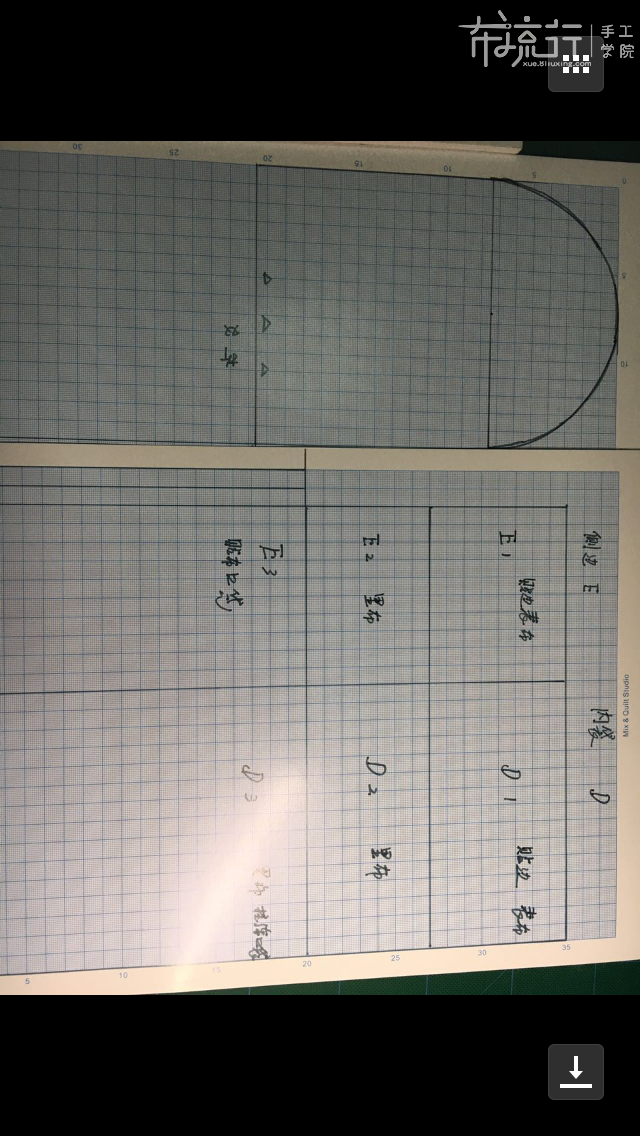 布流行
手工
学院
xue.buliuxing.com
30
25
20
15
10
5
0
5
10
侧边 E
内袋 D
E1
贴边表布
D1
贴边 表布
E2
里布
D2
里布
E3
D3
Mix & Quilt Studio
5
10
15
20
25
30
35